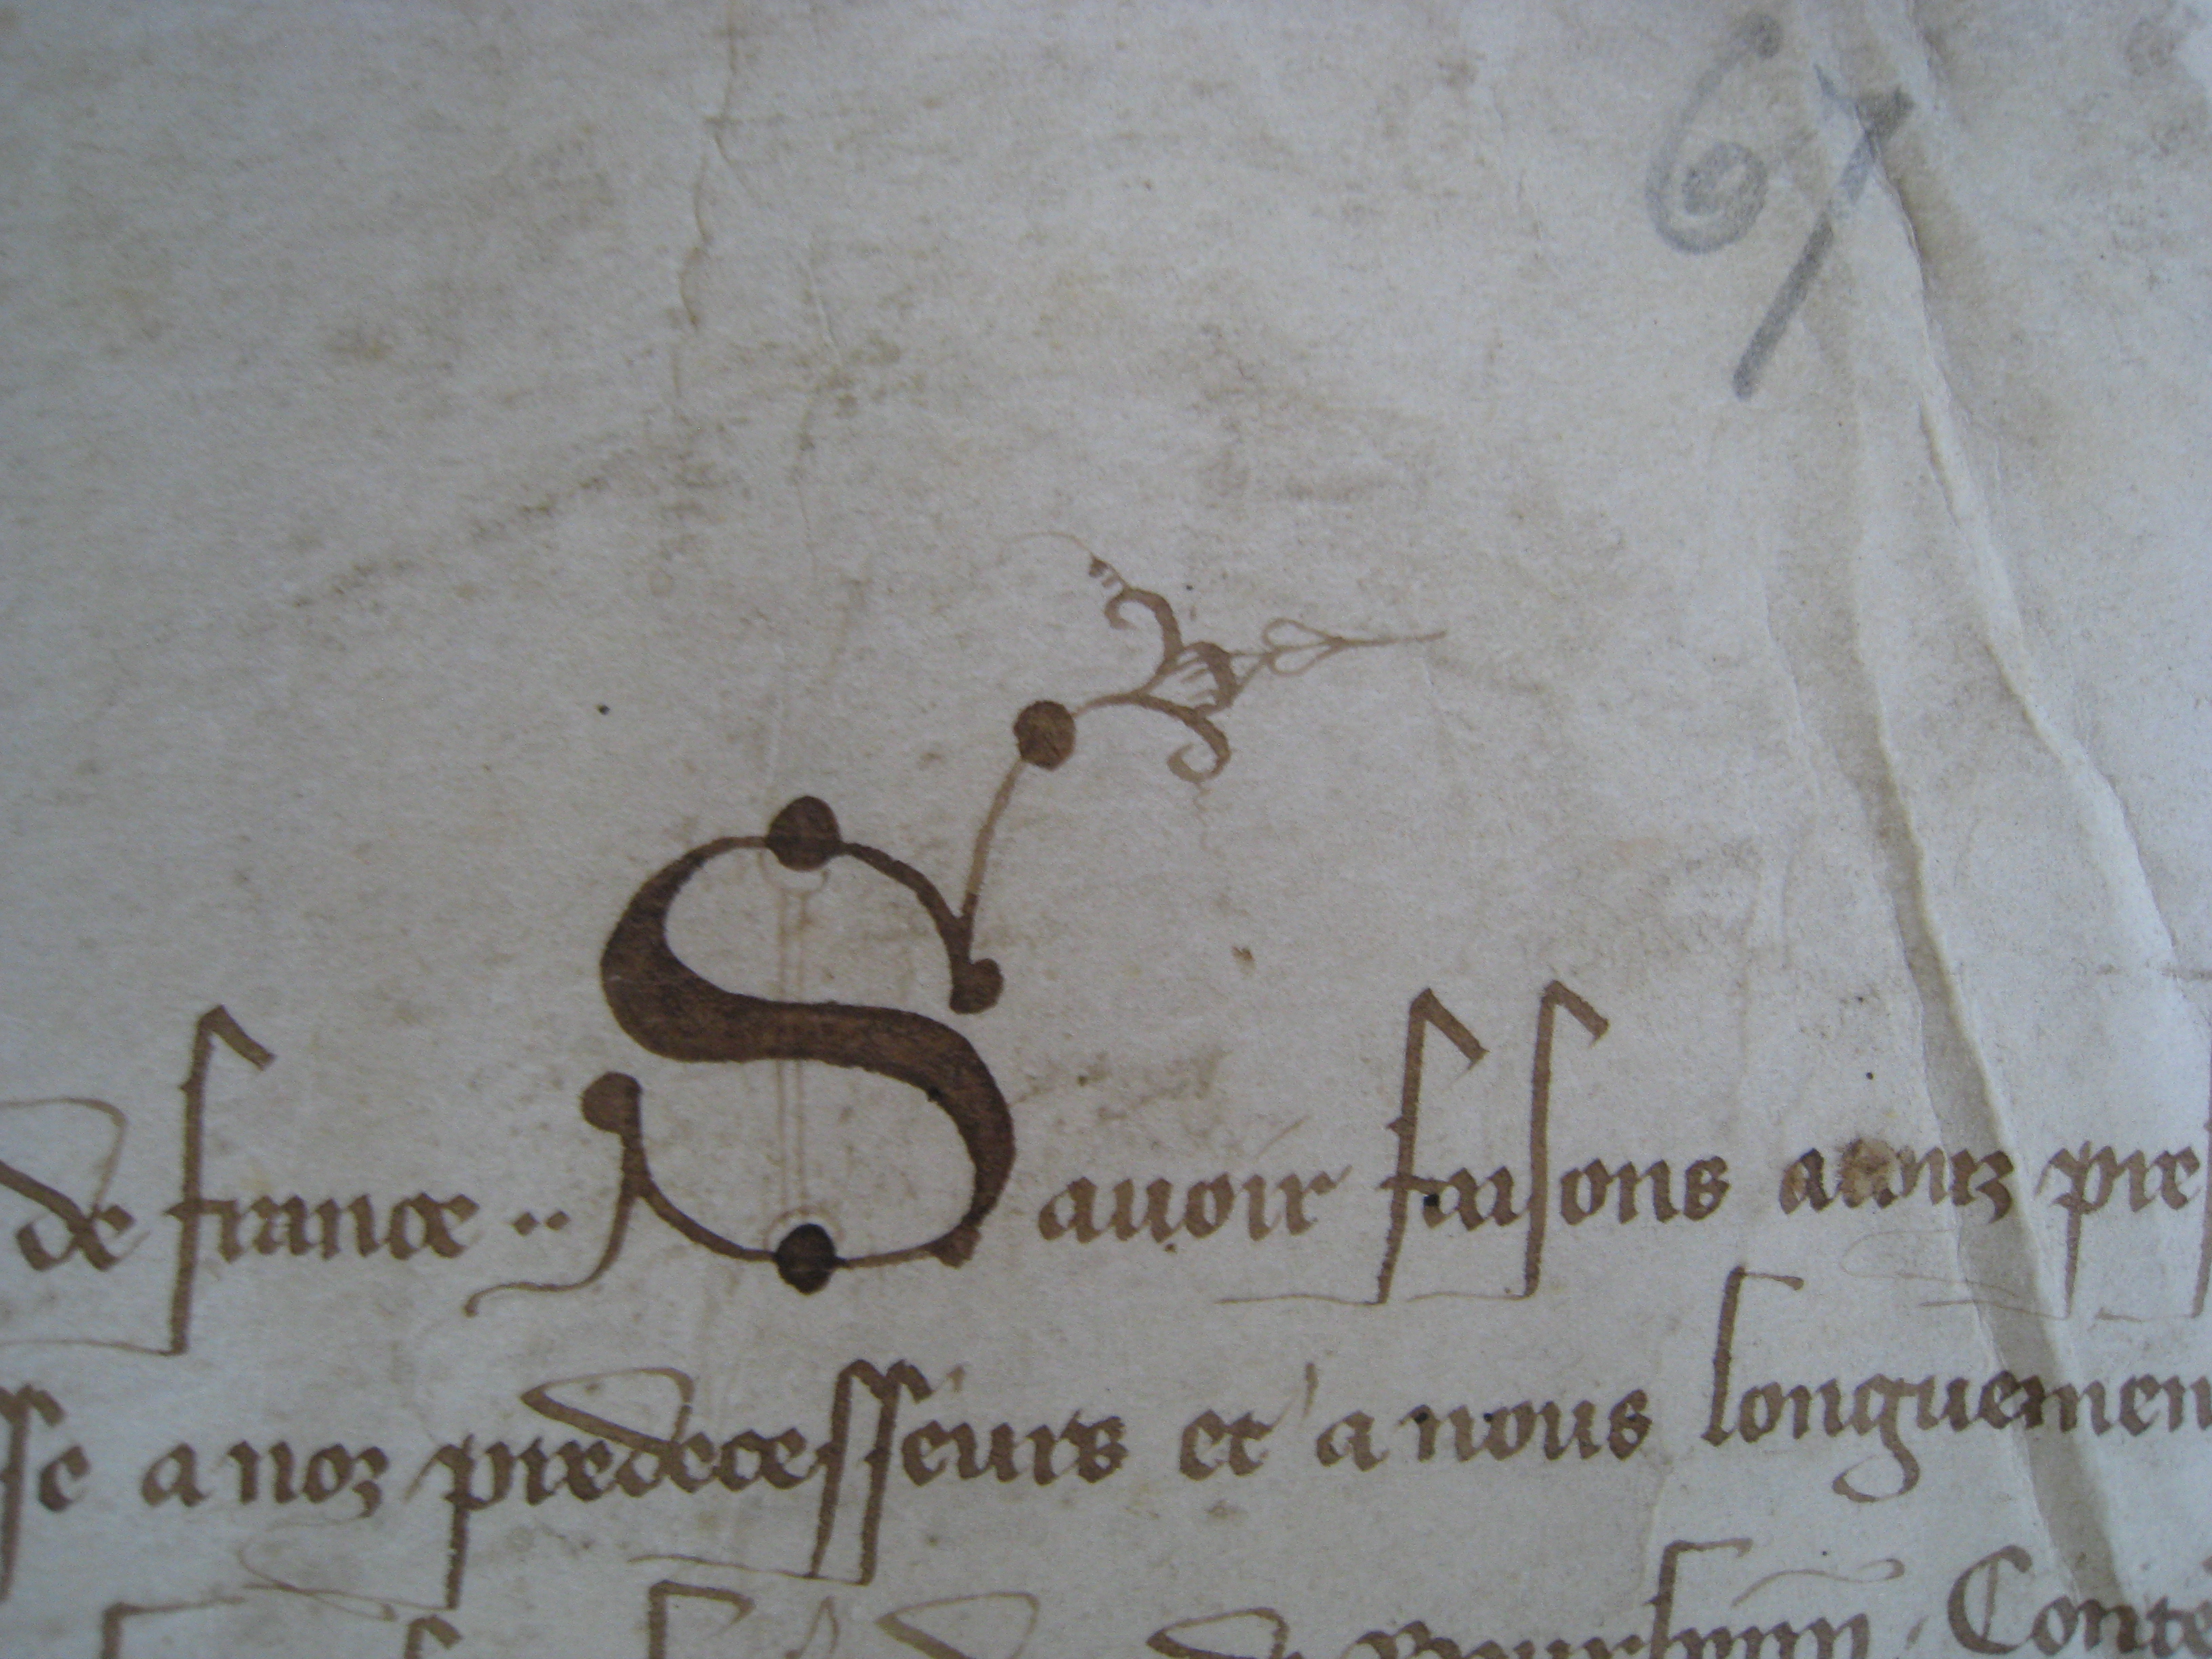 67
de france .. Savoir faisons a touz pre
sse a noz predecesseurs et a nous longuemen
de Bourbonn Conte